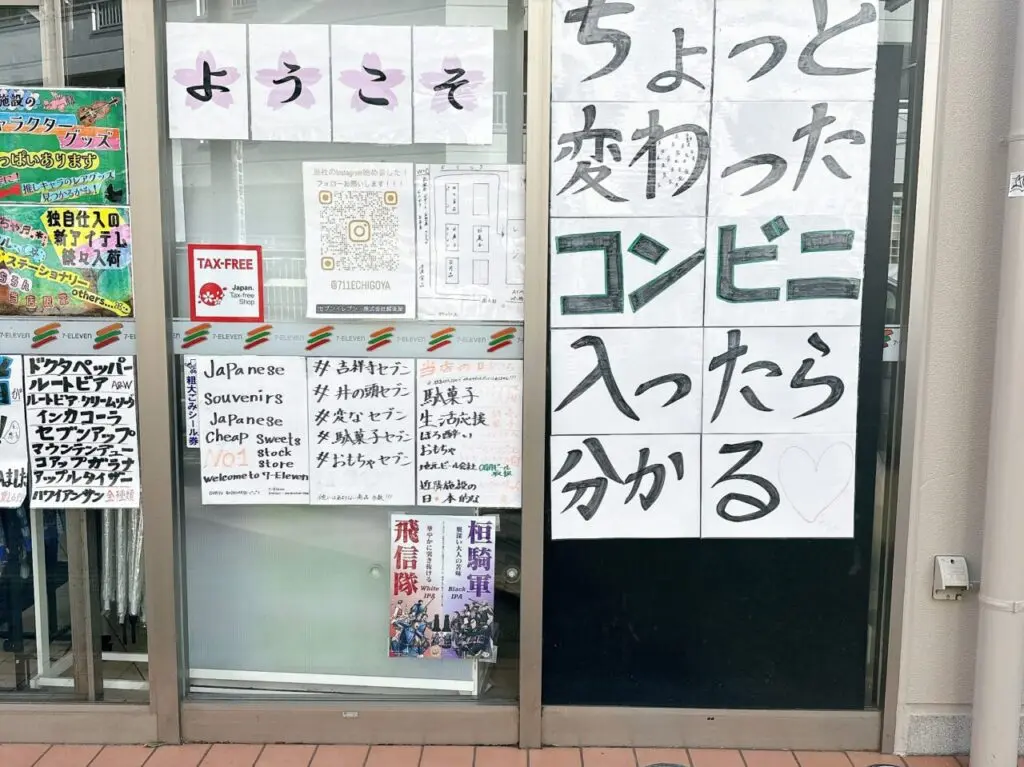 ようこそ
ちょっと
変わった
コンビニ
入ったら
分かる
施設の
ャラクター
グッズ
っぱいあります
推しキャラのレアグッズ
見つかるかも!
独自仕入の
新アイテム
続々入荷
ステーショナリー
others...
当社のInstagram始めました!
フォローお願いします!!!
@711ECHIGOYA
TAX-FREE
Japan.
Tax-free
Shop
7-ELEVEN
7-ELEVEN
7-ELEVEN
7-ELEVEN
7-ELEVEN
7-ELEVEN
ドクタペッパー
ルートビア A&W
ルートビア クリームソーダ
インカコーラ
セブンアップ
マウンテンデュー
コアップガラナ
アップルタイザー
ハワイアンサン 全種類
粗大ごみシール券
Japanese
Souvenirs
Japanese
Cheap Sweets
NO1 stock
store
welcome to 7-Eleven
#吉祥寺セブン
#井の頭セブン
#変なセブン
#駄菓子セブン
#おもちゃセブン
駄菓子
生活応援
ほろ酔い
おもちゃ
地元ビール会社
近隣施設の
飛信隊
華やかに突き抜ける
White
IPA
桓騎軍
根深い大人の苦味
Black
IPA